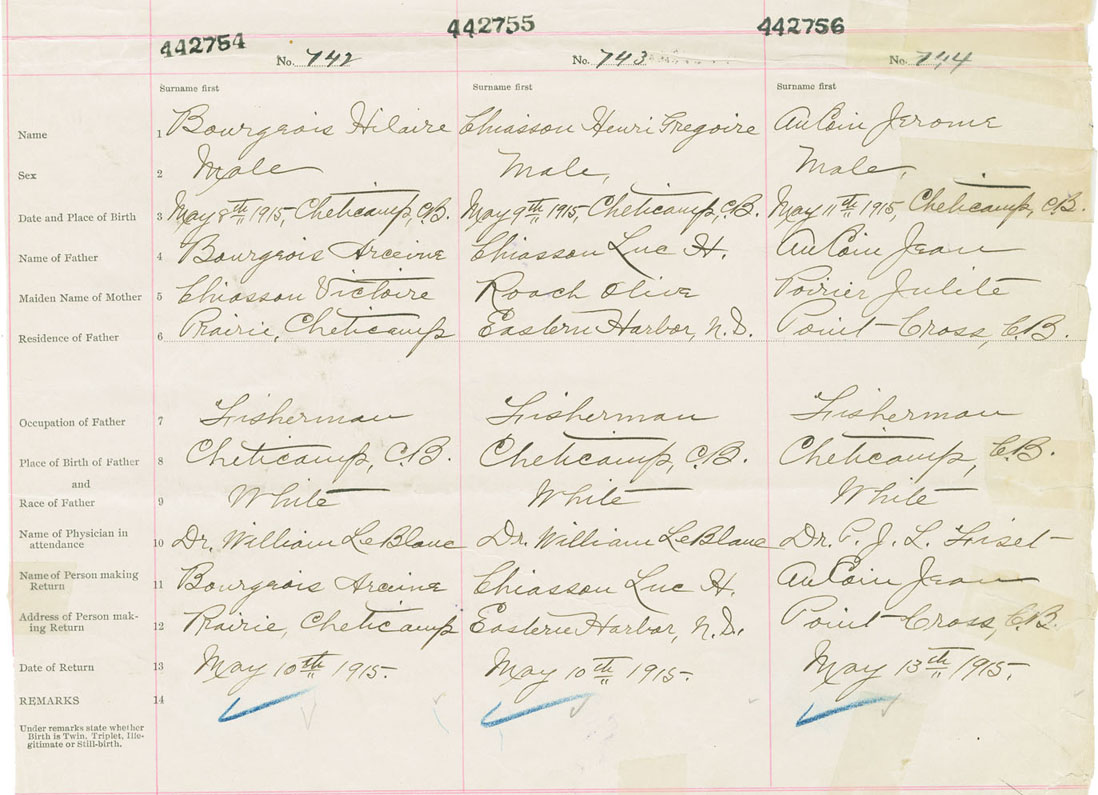 442754 442755 442756
No. 742 No. 743 No. 744
Surname first Surname first Surname first
Name 1 Bourgeois Hilaire Chiasson Henri Gregoire AuCoin Jerome
Sex 2 Male Male, Male,
Date and Place of Birth 3 May 8th 1915, Cheticamp, C.B. May 9th 1915, Cheticamp, C.B. May 11th 1915, Cheticamp, C.B.
Name of Father 4 Bourgeois Arceine Chiasson Luc H. AuCoin Jean
Maiden Name of Mother 5 Chiasson Victoire Roach Olive Poirier Julite
Residence of Father 6 Prairie, Cheticamp Eastern Harbor, N.D. Point-Cross, C.B.
Occupation of Father 7 Fisherman Fisherman Fisherman
Place of Birth of Father 8 Cheticamp, C.B. Cheticamp, C.B. Cheticamp, C.B.
and
Race of Father 9 White White White
Name of Physician in
attendance 10 Dr. William LeBlanc Dr. William LeBlanc Dr. P. J. L. Fiset
Name of Person making
Return 11 Bourgeois Arceine Chiasson Luc H. AuCoin Jean
Address of Person mak-
ing Return 12 Prairie, Cheticamp Eastern Harbor, N.D. Point-Cross, C.B.
Date of Return 13 May 10th 1915. May 10th 1915. May 13th 1915.
REMARKS 14
Under remarks state whether
Birth is Twin, Triplet, Ille-
gitimate or Still-birth.